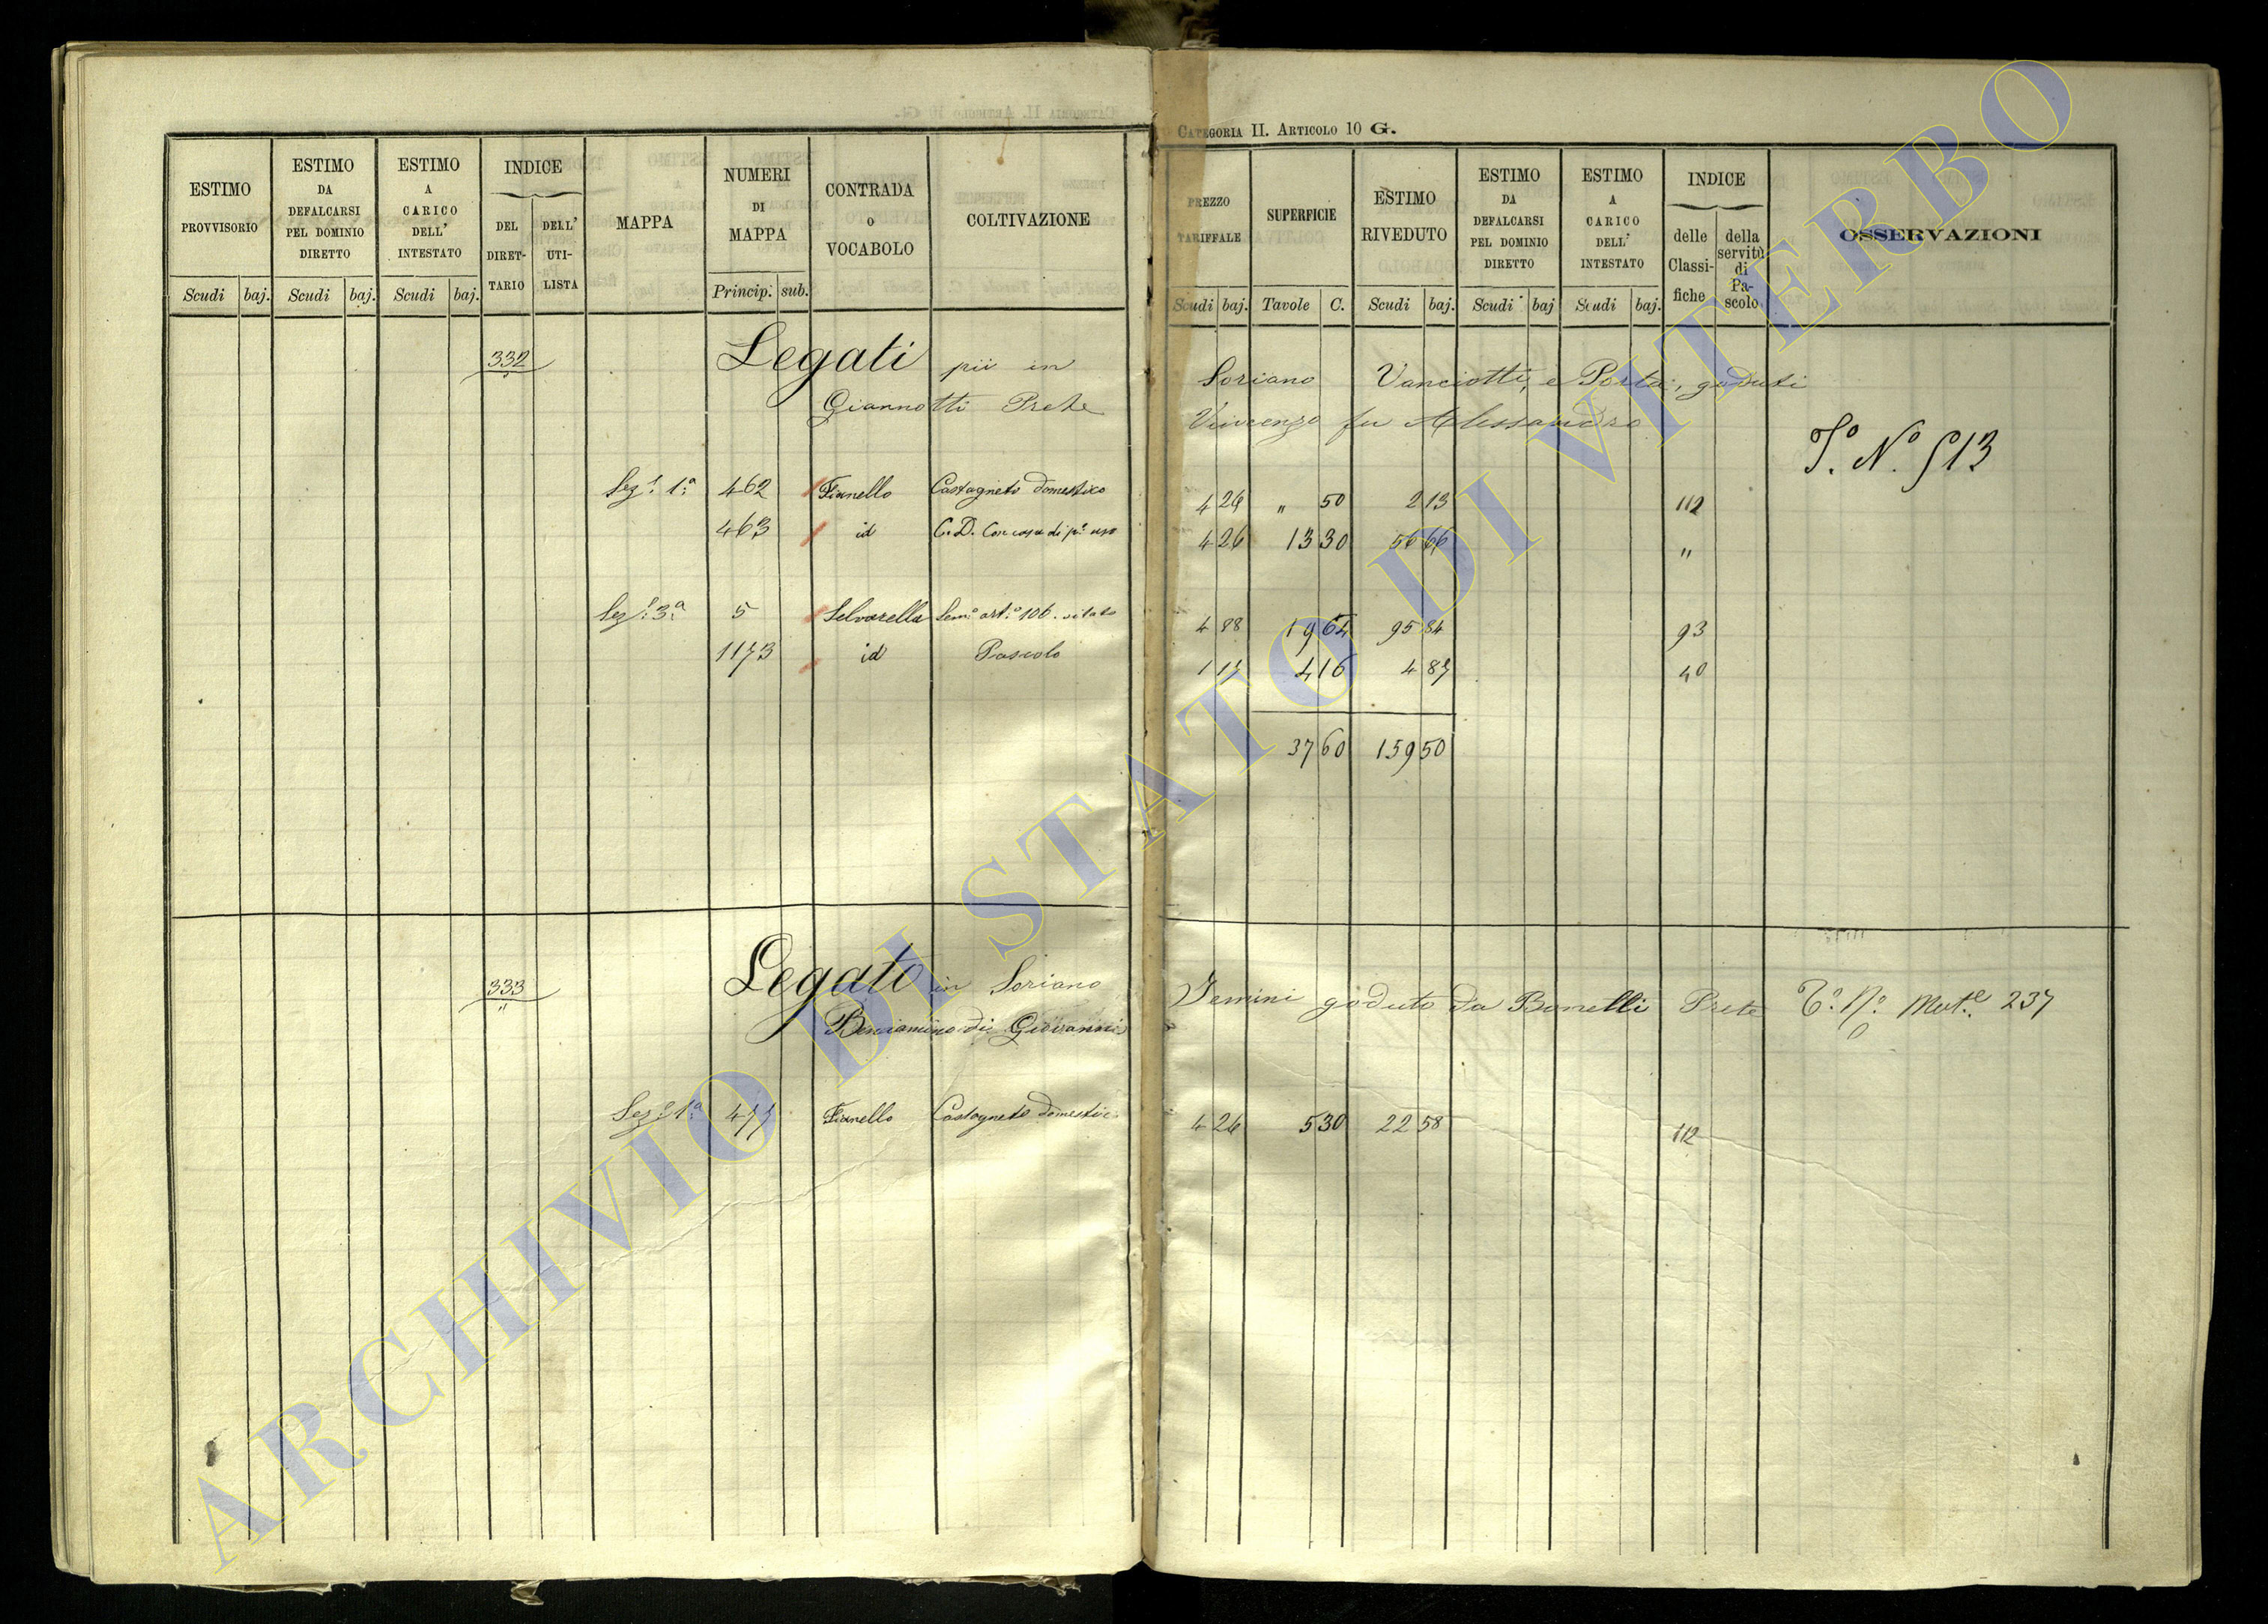 CATEGORIA II. ARTICOLO 10 G.
ESTIMO PROVVISORIO Scudi baj.
ESTIMO DA DEFALCARSI PEL DOMINIO DIRETTO Scudi baj.
ESTIMO A CARICO DELL' INTESTATO Scudi baj.
INDICE DEL DIRETTARIO DELL' UTILISTA
MAPPA
NUMERI DI MAPPA Princip. sub.
CONTRADA o VOCABOLO
COLTIVAZIONE
PREZZO TARIFFALE Scudi baj.
SUPERFICIE Tavole C.
ESTIMO RIVEDUTO Scudi baj.
ESTIMO DA DEFALCARSI PEL DOMINIO DIRETTO Scudi baj
ESTIMO A CARICO DELL' INTESTATO Scudi baj.
INDICE delle Classifiche della servitù di Pascolo
OSSERVAZIONI
332 Legati pii in Soriano Vanciotti, e Porta, goduti
Giannotti Prete Vincenzo fu Alessandro
T.º N.º 513
Sez. 1.ª 462 Fianello Castagneto domestico 4 26 " 50 2 13 112
463 id C.D. Con casa di p.º uso 4 26 13 30 56 66 "
Sez. 3.ª 5 Selvarella Sem.º art.º 106. vitato 4 88 19 64 95 84 93
1173 id Pascolo 1 17 4 16 4 87 40
37 60 159 50
333 Legato in Soriano Jemini goduto da Bonelli Prete T.º N.º Mut.e 237
Beniamino di Giovanni
Sez. 1.ª 477 Fianello Castagneto domestic. 4 26 5 30 22 58 112
ARCHIVIO DI STATO DI VITERBO